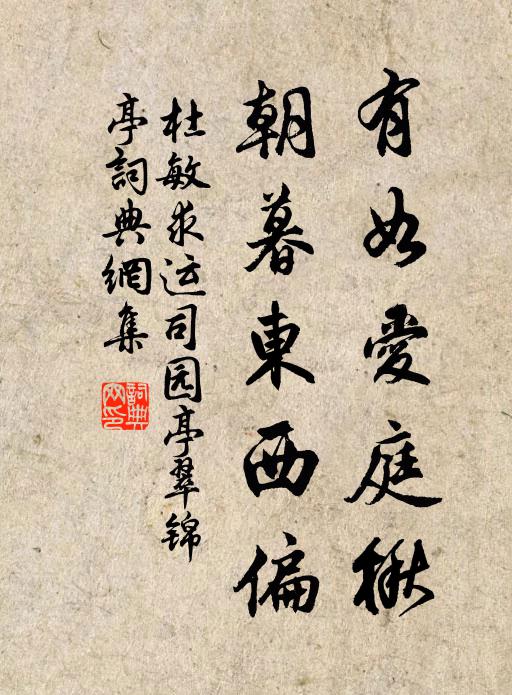 有如愛庭楸
朝暮東西偏
杜敏求运司园亭翠锦
亭詞典網集
詞典網印